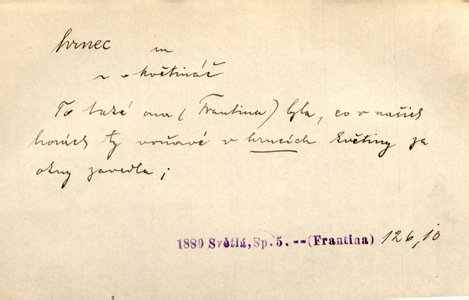 hrnec m
n - květináč
To také ona (Frantina) byla, co v našich
horách ty voňavé v hrncích květiny za
okny zavedla;
1880 Světlá, Sp. 5. -- (Frantina) 126,10